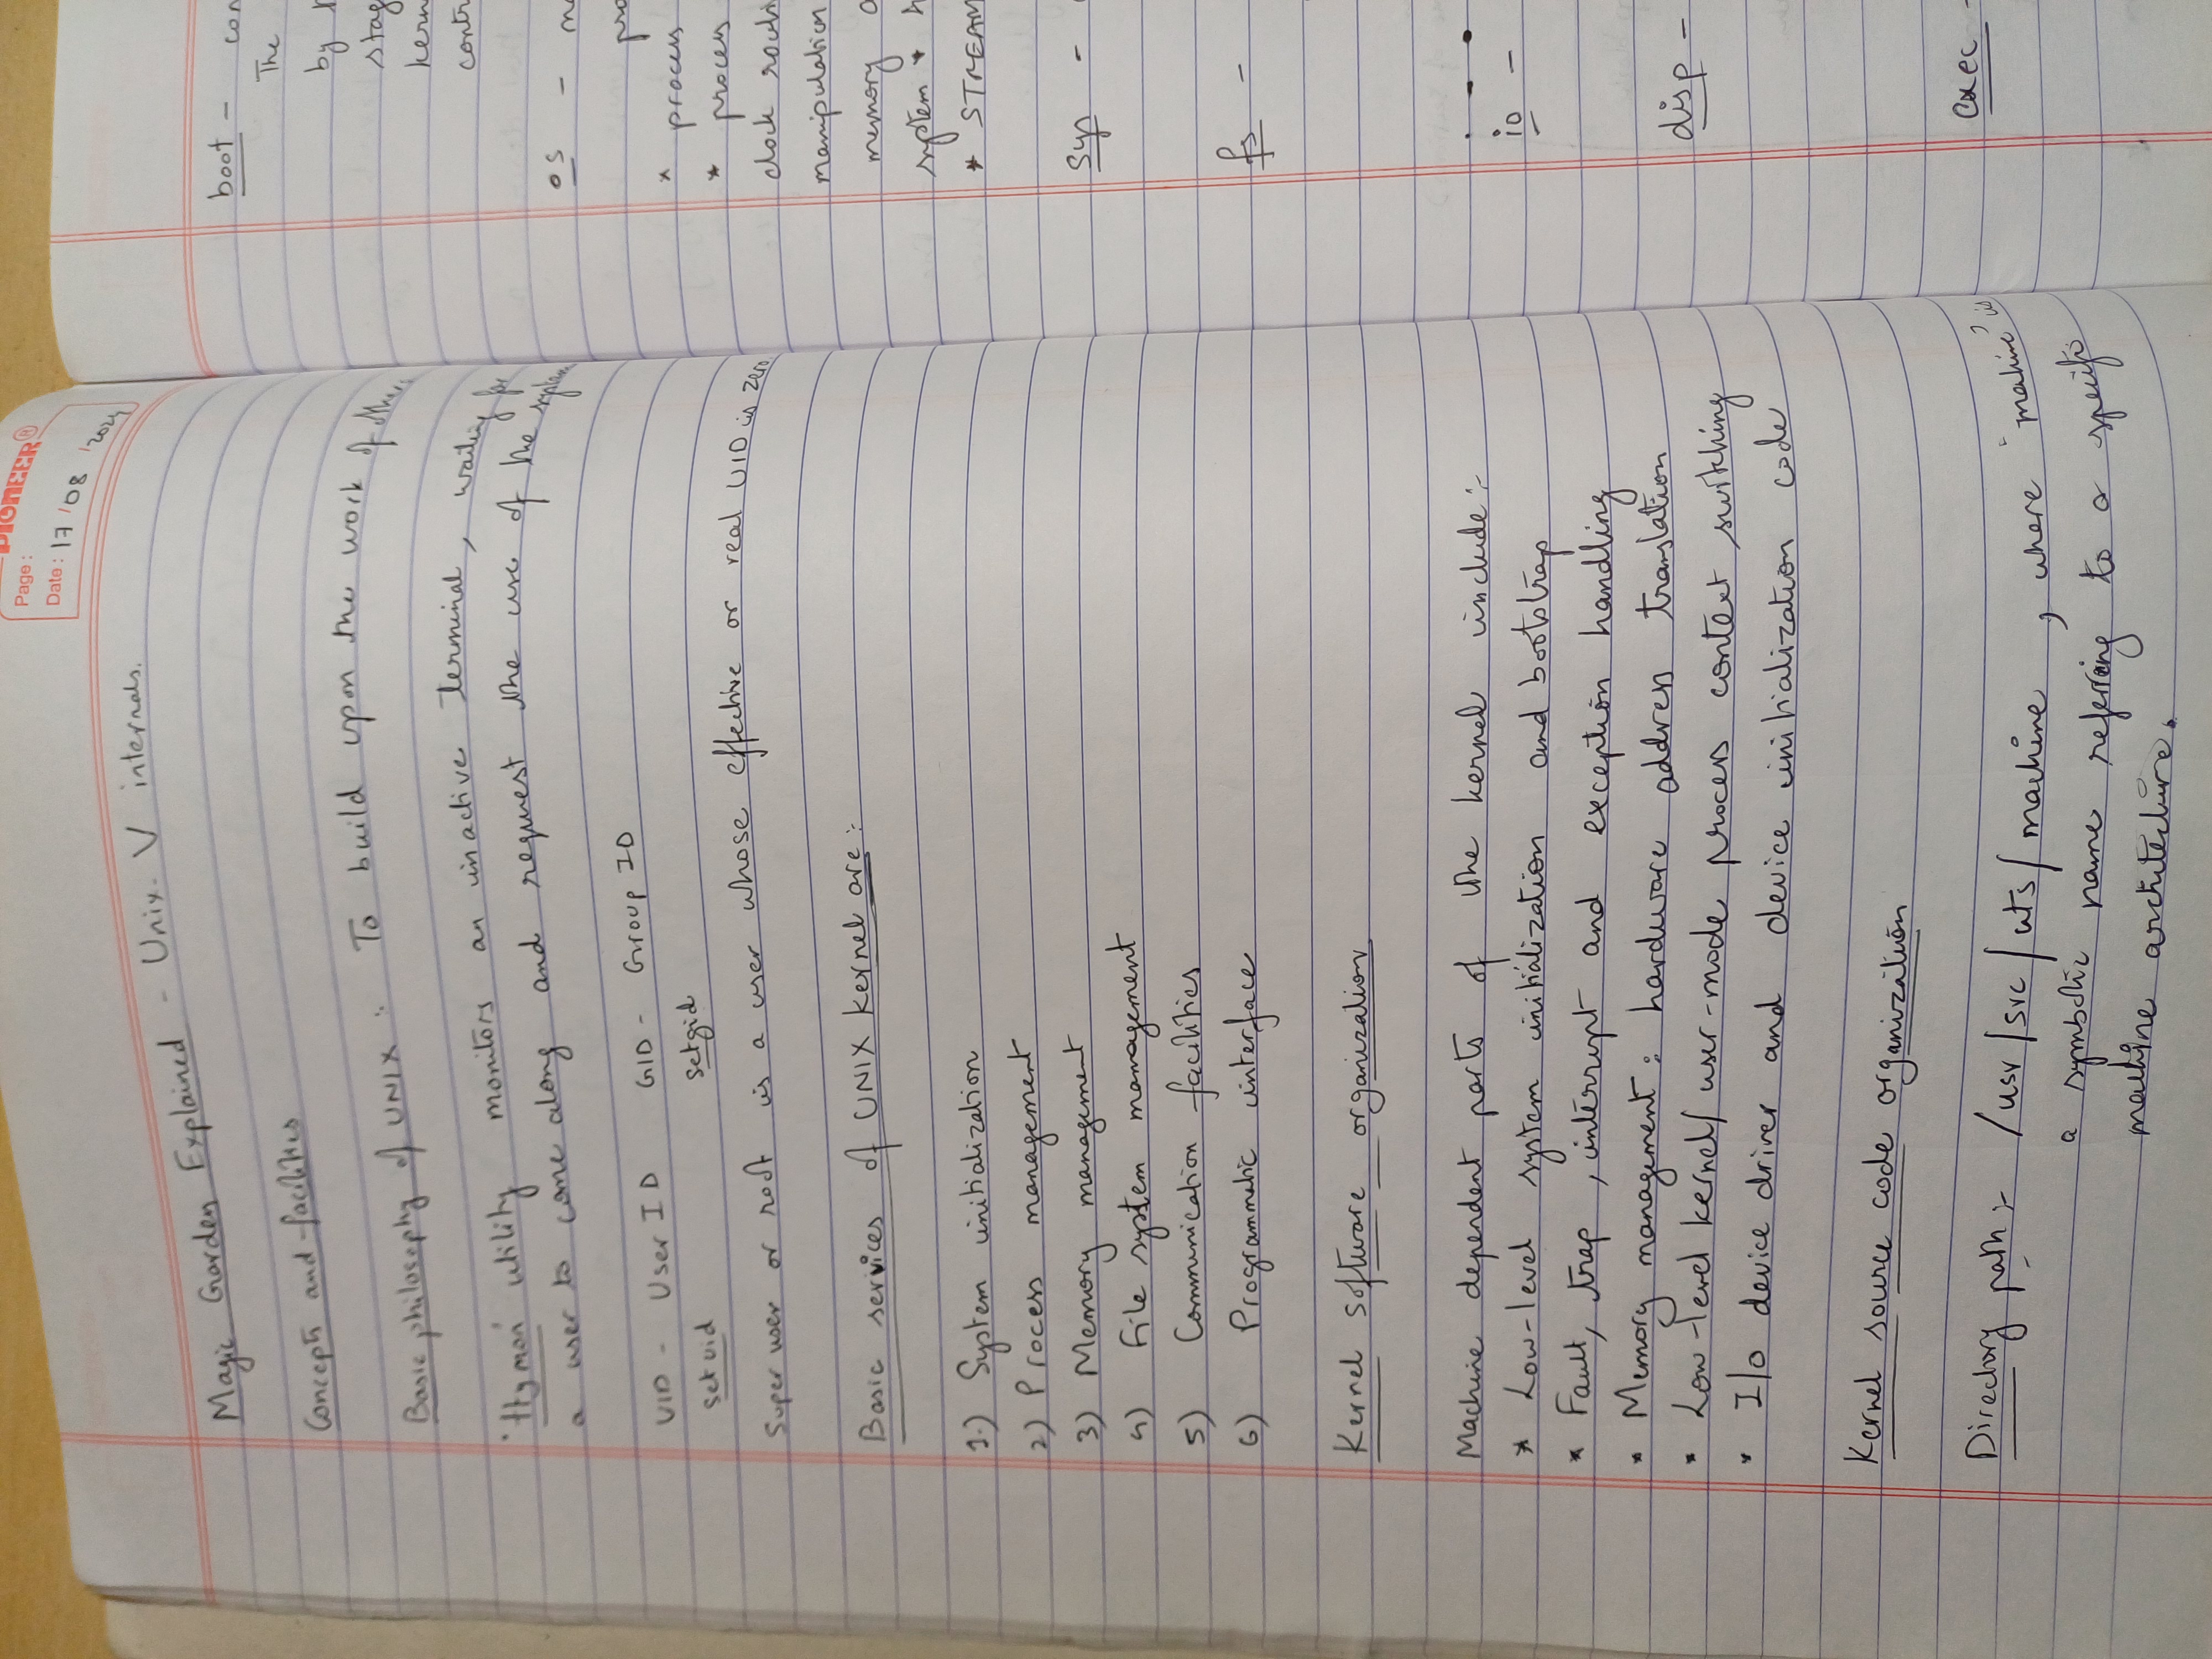 PIONEER®
Page :
Date : 17 / 08 / 2024
Magic Garden Explained - Unix. V internals.
Concepts and facilities
Basic philosophy of UNIX : To build upon the work of others
'ttymon' utility monitors an inactive terminal, waiting for
a user to come along and request the use of the system
UID - User ID GID - Group ID
setuid setgid
Super user or root is a user whose effective or real UID is zero
Basic services of UNIX Kernel are :
1.) System initialization
2) Process management
3) Memory management
4) File system management
5) Communication facilities
6) Programmatic interface
Kernel software organization
Machine dependent parts of the kernel include :-
* Low-level system initialization and bootstrap
* Fault, trap, interrupt and exception handling
* Memory management : hardware address translation
* Low-level kernel/user-mode process context switching
* I/O device driver and device initialization code
Kernel source code organization
Directory path :- /usr/src/uts/machine, where 'machine' is
a symbolic name referring to a specific
machine architecture.
boot - con
The
by
stag
kern
contr
os - ma
pro
* process
* process
clock routi
manipulation
memory a
system *
* STREAM
Sys -
fs -
io -
disp -
exec -